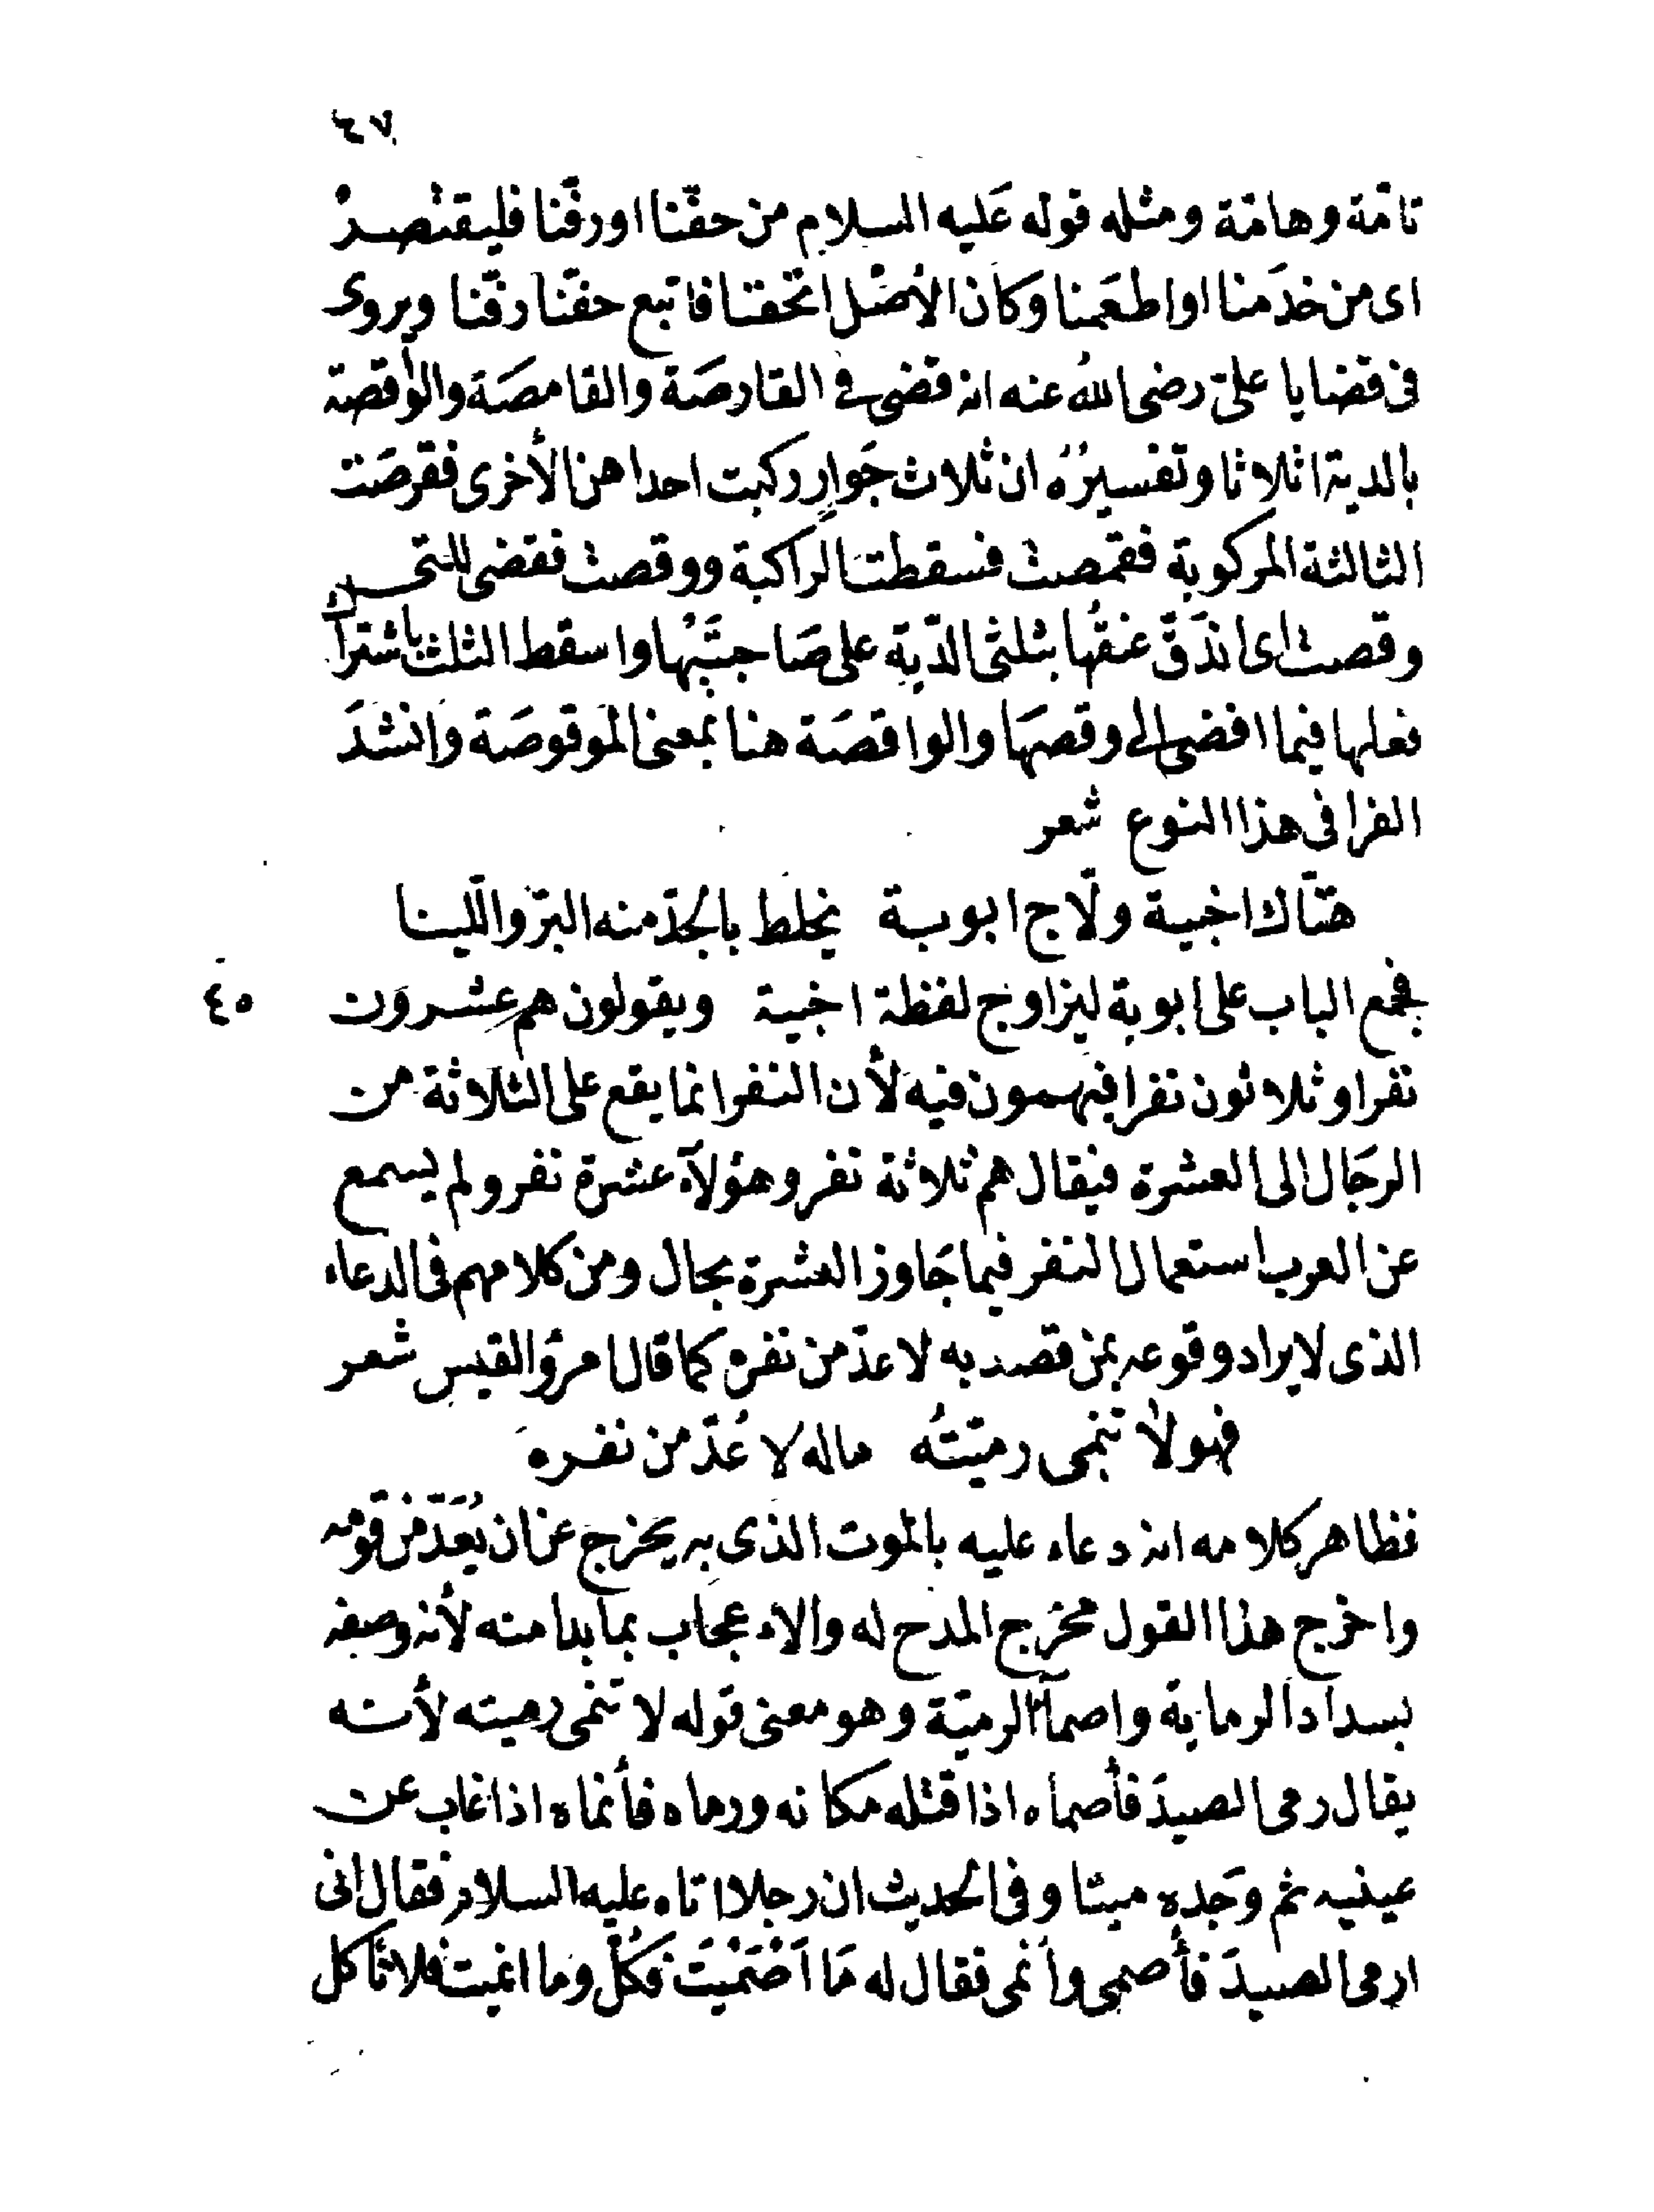 ٦٧
تامّة وهامّة ومثله قوله عَليه السلام من حفّنا او رفّنا فليقتصدْ
اى من خدَمنا او اطعَمنا وكان الأصْل اتحفنا فاتبع حفّنا رفّنا ويروى
فى قضايا علىّ رضى اللهُ عنه انه قضى فى القارصَة والقامصَة والواقصة
بالدية اثلاثا وتفسيرُهُ ان ثلاث جَوارٍ ركبت احداهن الأخرى فقرصَت
الثالثة المركوبة فقمصت فسقطت الراكبة ووقصت فقضى للتى
وقصت اى اندَقّ عنقُها بثلثى الدّية على صَاحبتَيْها واسقط الثلث باشتراك
فعلها فيما افضى الى وقصهَا والواقصَة هنا بمعنى الموقوصَة وانشدَ
الفرا فى هذا النوع شعر
هتّاك اخبية ولّاج ابوبة يخلط بالجدّ منه البرّ واللّينا
فجمع الباب على ابوبة ليزاوج لفظة اخبية ويقولون هم عِشرون
٤٥
نفرا وثلاثون نفرا فيهمون فيه لأن النفر انما يقع على الثلاثة من
الرجَال الى العشرة فيقال هم ثلاثة نفر وهؤلآء عشرة نفر ولم يسمع
عن العرب استعمال النفر فيما جَاوز العشرة بحال ومن كلامهم فى الدعاء
الذى لا يراد وقوعه بمن قصد به لا عدّ من نفره كما قال امرؤ القيس شعر
فهو لا تنمى رميّتُه ماله لا عُدّ من نفره
فظاهر كلامه انه دعاء عليه بالموت الذى به يخرج عن ان يُعَدّ من قومه
واخرج هذا القول مخرَج المدح له والاعجاب بما بدا منه لأنه وصفه
بسداد الرماية واصمآء الرميّة وهو معنى قوله لا تنمى رميته لأنه
يقال رمى الصيدَ فأصماه اذا قتله مكانه ورماه فأنماه اذا غاب عن
عينيه ثم وجَده ميتا وفى الحديث ان رجلا اتاه عليه السلام فقال انى
ارمى الصيدَ فأصمى وأنمى فقال له مَا اَصْمَيْتَ فكُلْ وما انميت فلا تأكل